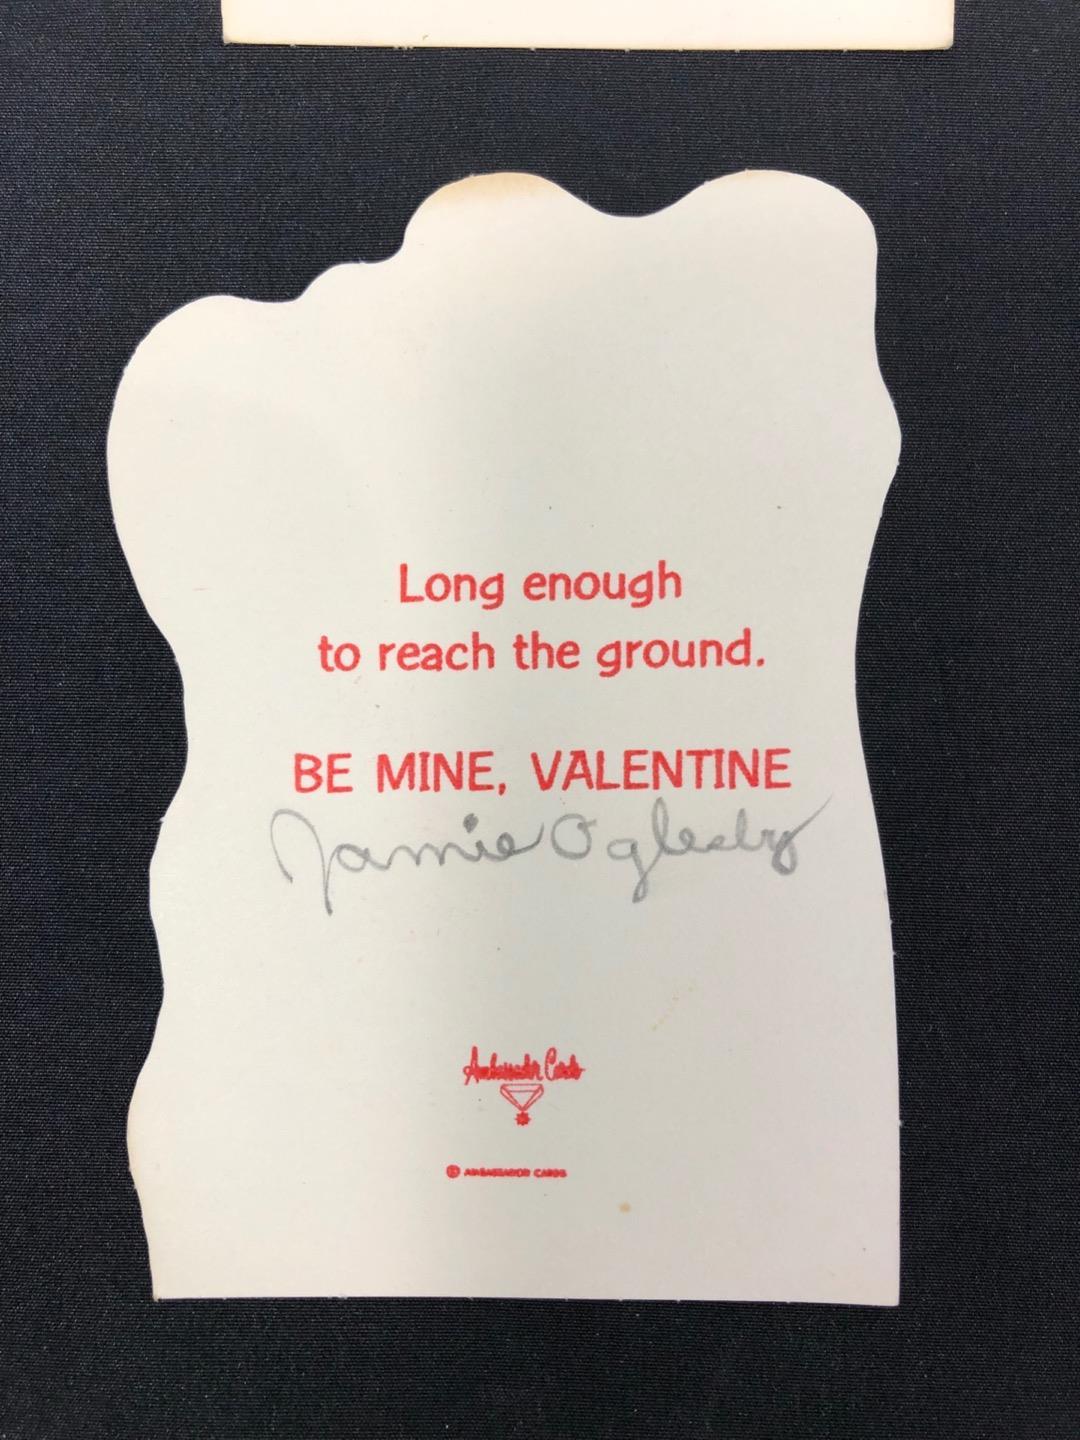 Long enough
to reach the ground.
BE MINE, VALENTINE
Jamie Oglesby
Ambassador Cards
© AMBASSADOR CARDS